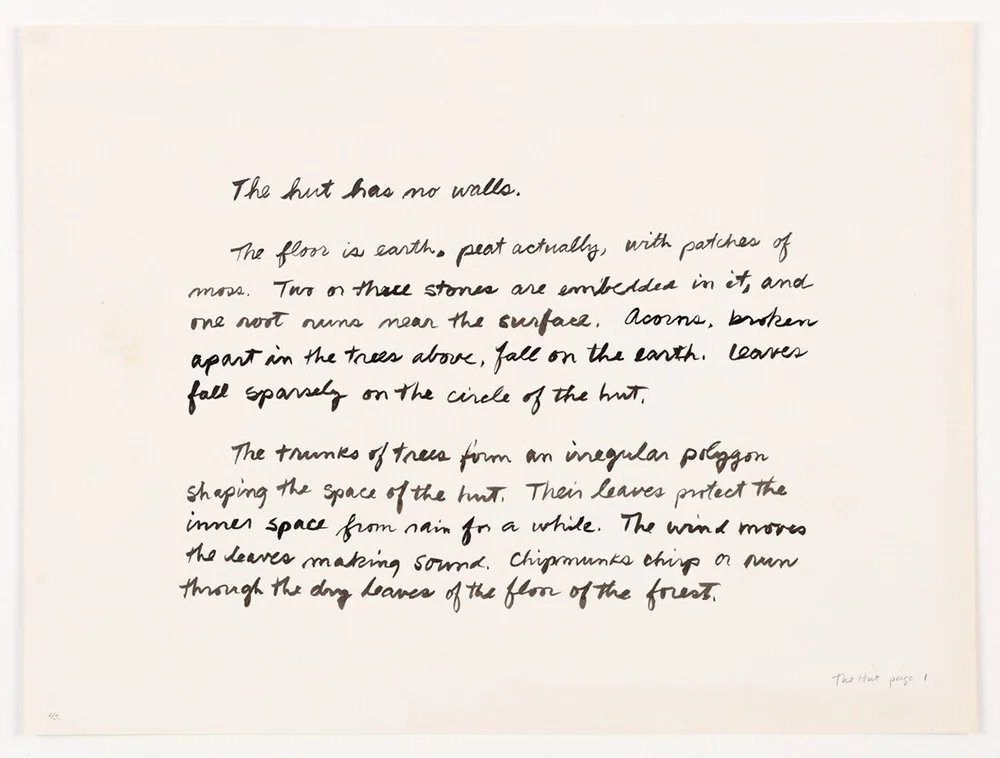 The hut has no walls.
The floor is earth, peat actually, with patches of
moss. Two or three stones are embedded in it, and
one root runs near the surface. Acorns, broken
apart in the trees above, fall on the earth. Leaves
fall sparsely on the circle of the hut.
The trunks of trees form an irregular polygon
shaping the space of the hut. Their leaves protect the
inner space from rain for a while. The wind moves
the leaves making sound. Chipmunks chirp or run
through the dry leaves of the floor of the forest.
The Hut page 1